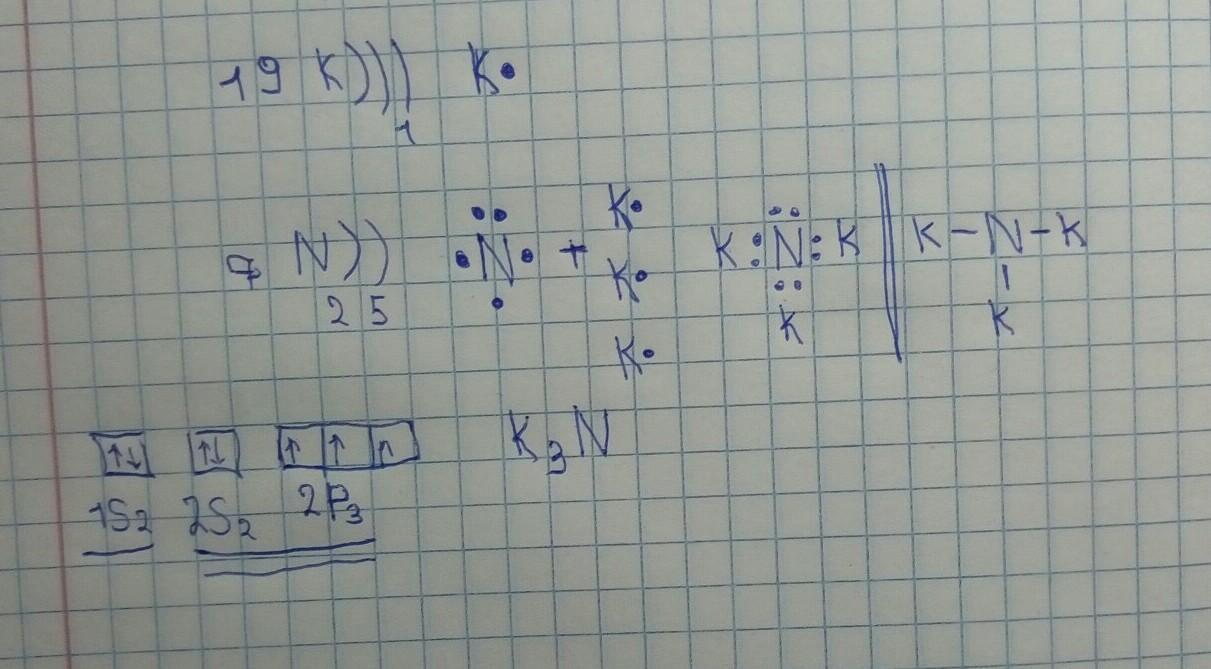 19 K))) K•
1
7 N)) •N• + K• K• K• K:N:K K-N-K
2 5 K K
K₃N
1S₂ 2S₂ 2P₃